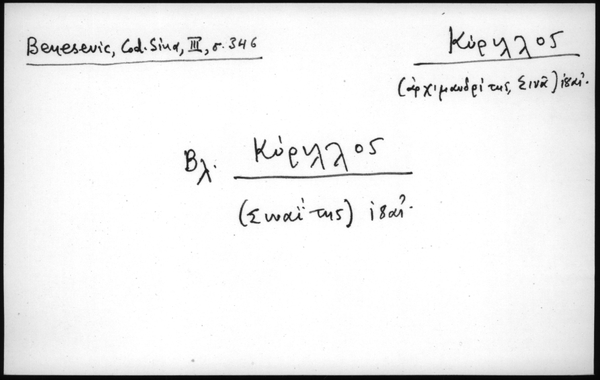 Benesevic, Cod. Sina, III, σ. 346
Κύριλλος
(ἀρχιμανδρίτης, Σινᾶ) ιβαί.
Βλ. Κύριλλος
(Σιναΐτης)